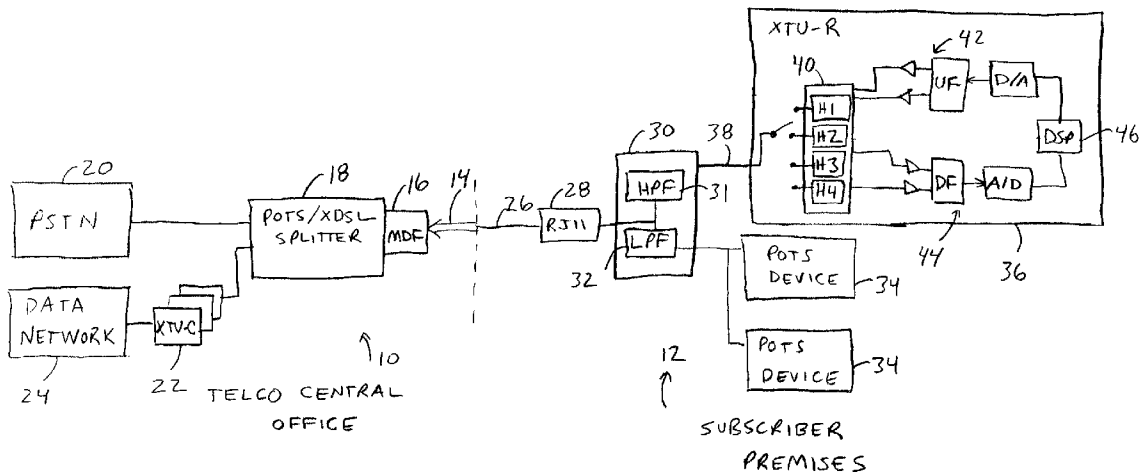 XTU-R
42
40
UF
D/A
H1
H2
H3
H4
DSP
46
DF
A/D
44
36
38
30
HPF
31
LPF
32
28
RJ11
26
14
16
MDF
18
POTS/XDSL
SPLITTER
20
PSTN
DATA
NETWORK
24
XTU-C
22
10
TELCO CENTRAL
OFFICE
12
SUBSCRIBER
PREMISES
POTS
DEVICE
34
POTS
DEVICE
34